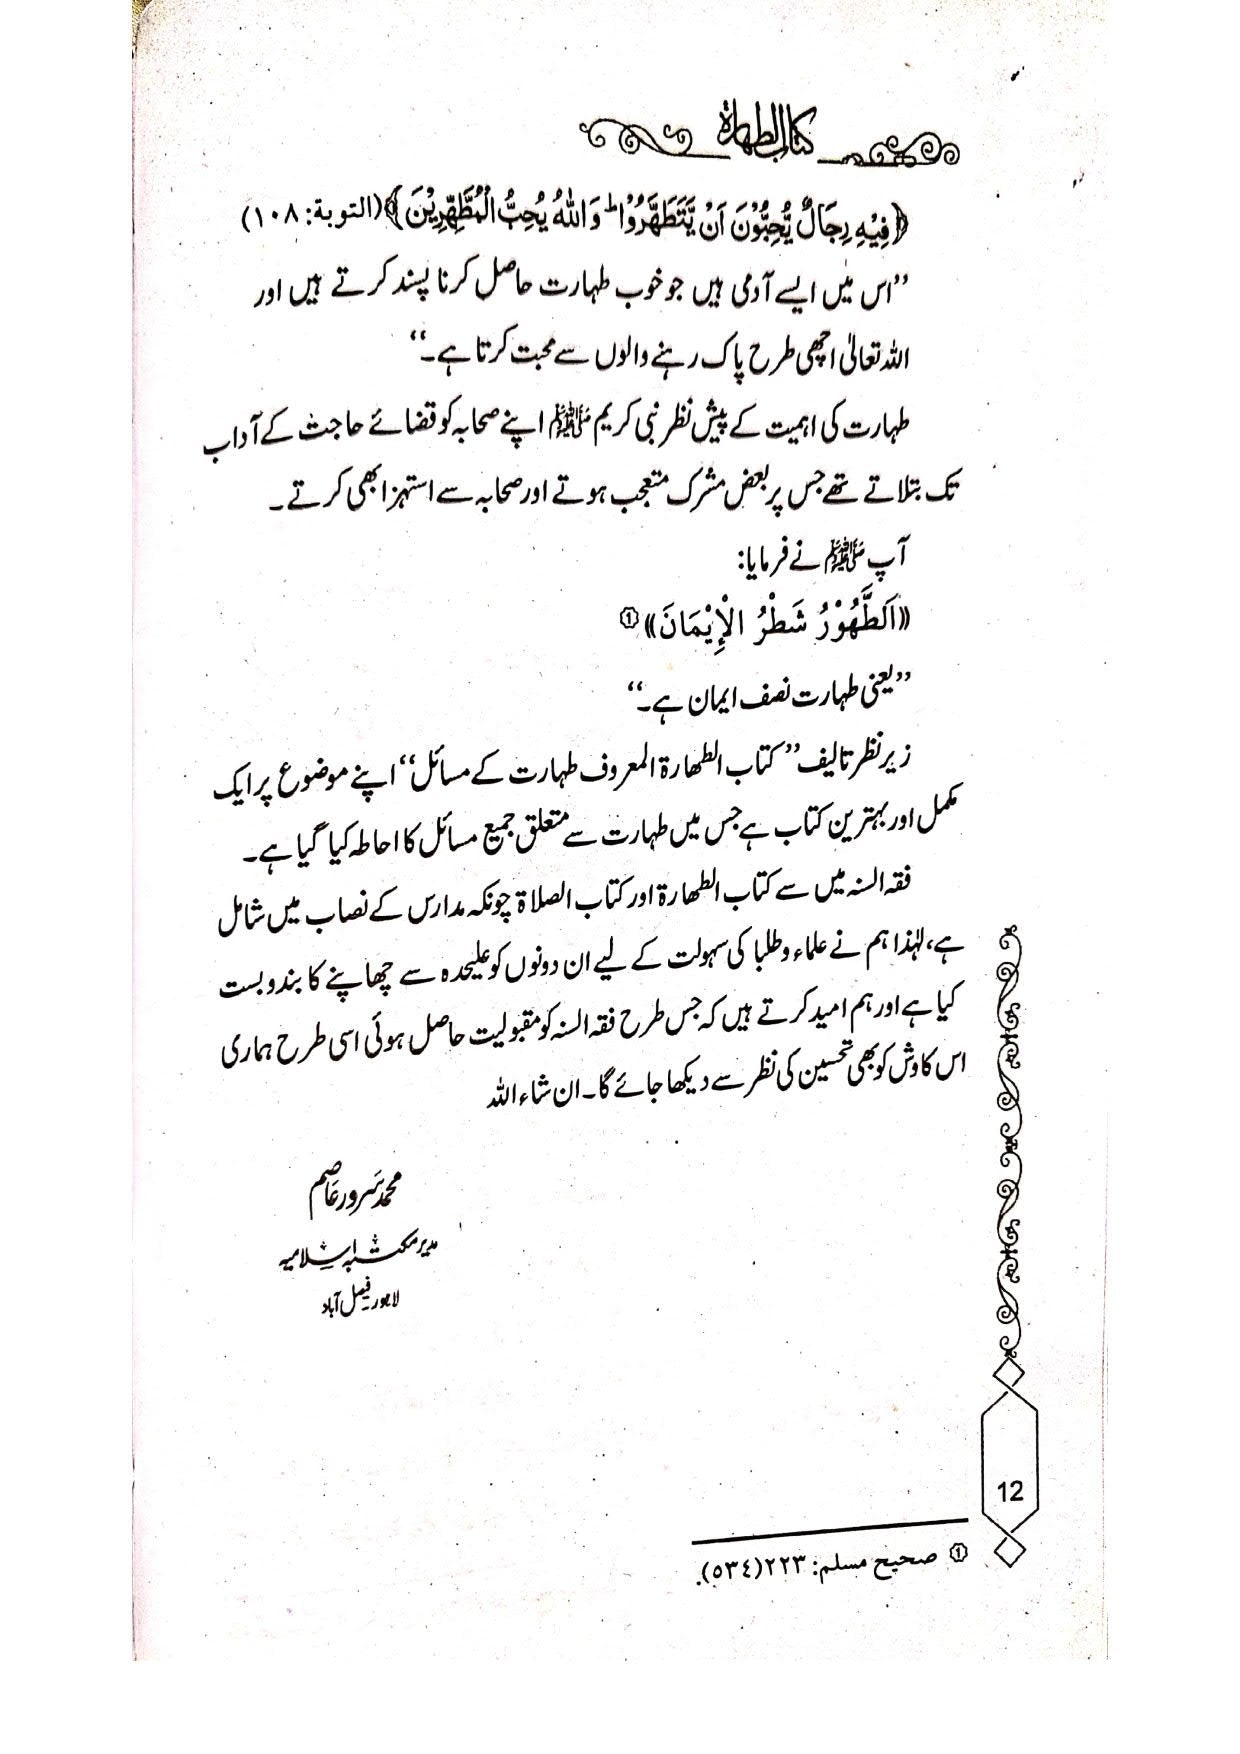 کتاب الطهارة
﴿فِیْهِ رِجَالٌ یُّحِبُّوْنَ اَنْ یَّتَطَهَّرُوْا ؕ وَاللّٰهُ یُحِبُّ الْمُطَّهِّرِیْنَ﴾ (التوبة: ١٠٨)
’’اس میں ایسے آدمی ہیں جو خوب طہارت حاصل کرنا پسند کرتے ہیں اور
اللہ تعالیٰ اچھی طرح پاک رہنے والوں سے محبت کرتا ہے۔‘‘
طہارت کی اہمیت کے پیش نظر نبی کریم ﷺ اپنے صحابہ کو قضائے حاجت کے آداب
تک بتلاتے تھے جس پر بعض مشرک متعجب ہوتے اور صحابہ سے استہزا بھی کرتے۔
آپ ﷺ نے فرمایا:
((اَلطَّهُوْرُ شَطْرُ الْإِیْمَانَ)) ①
’’یعنی طہارت نصف ایمان ہے۔‘‘
زیر نظر تالیف ’’کتاب الطھارۃ المعروف طہارت کے مسائل‘‘ اپنے موضوع پر ایک
مکمل اور بہترین کتاب ہے جس میں طہارت سے متعلق جمیع مسائل کا احاطہ کیا گیا ہے۔
فقہ السنہ میں سے کتاب الطھارۃ اور کتاب الصلاۃ چونکہ مدارس کے نصاب میں شامل
ہے، لہٰذا ہم نے علماء و طلبا کی سہولت کے لیے ان دونوں کو علیحدہ سے چھاپنے کا بندوبست
کیا ہے اور ہم امید کرتے ہیں کہ جس طرح فقہ السنہ کو مقبولیت حاصل ہوئی اسی طرح ہماری
اس کاوش کو بھی تحسین کی نظر سے دیکھا جائے گا۔ ان شاء اللہ
محمد سرور عاصم
مدیر مکتبہ اسلامیہ
لاہور۔ فیصل آباد
12
① صحیح مسلم: ٢٢٣ (٥٣٤).